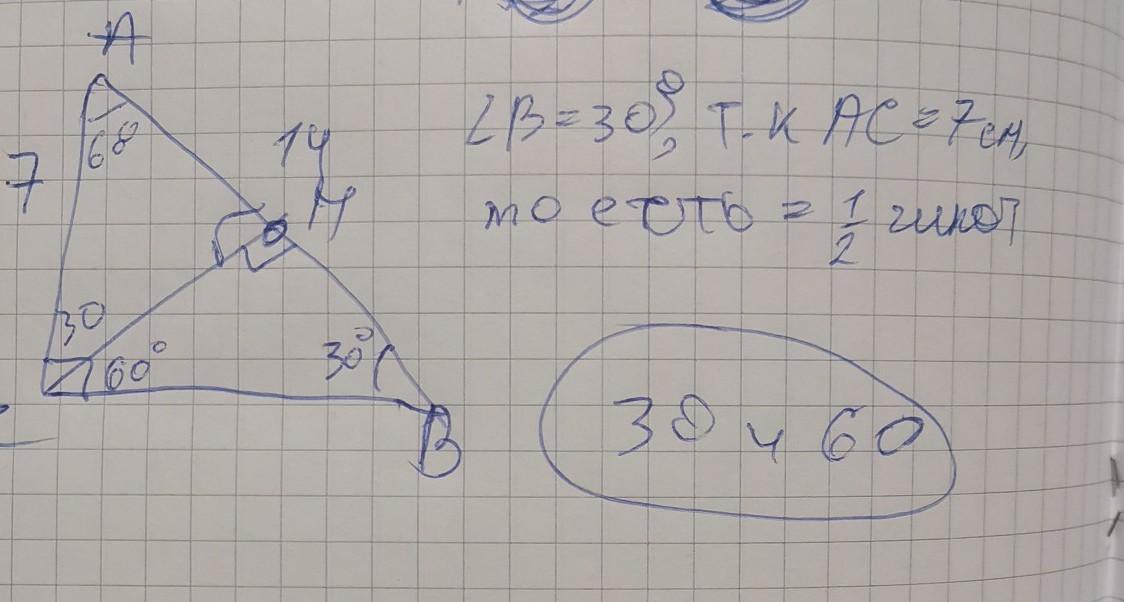 A
7
60
14
H
30
60°
30°
B
∠B=30°, т.к AC=7см,
то есть = 1/2 гипот
30 и 60